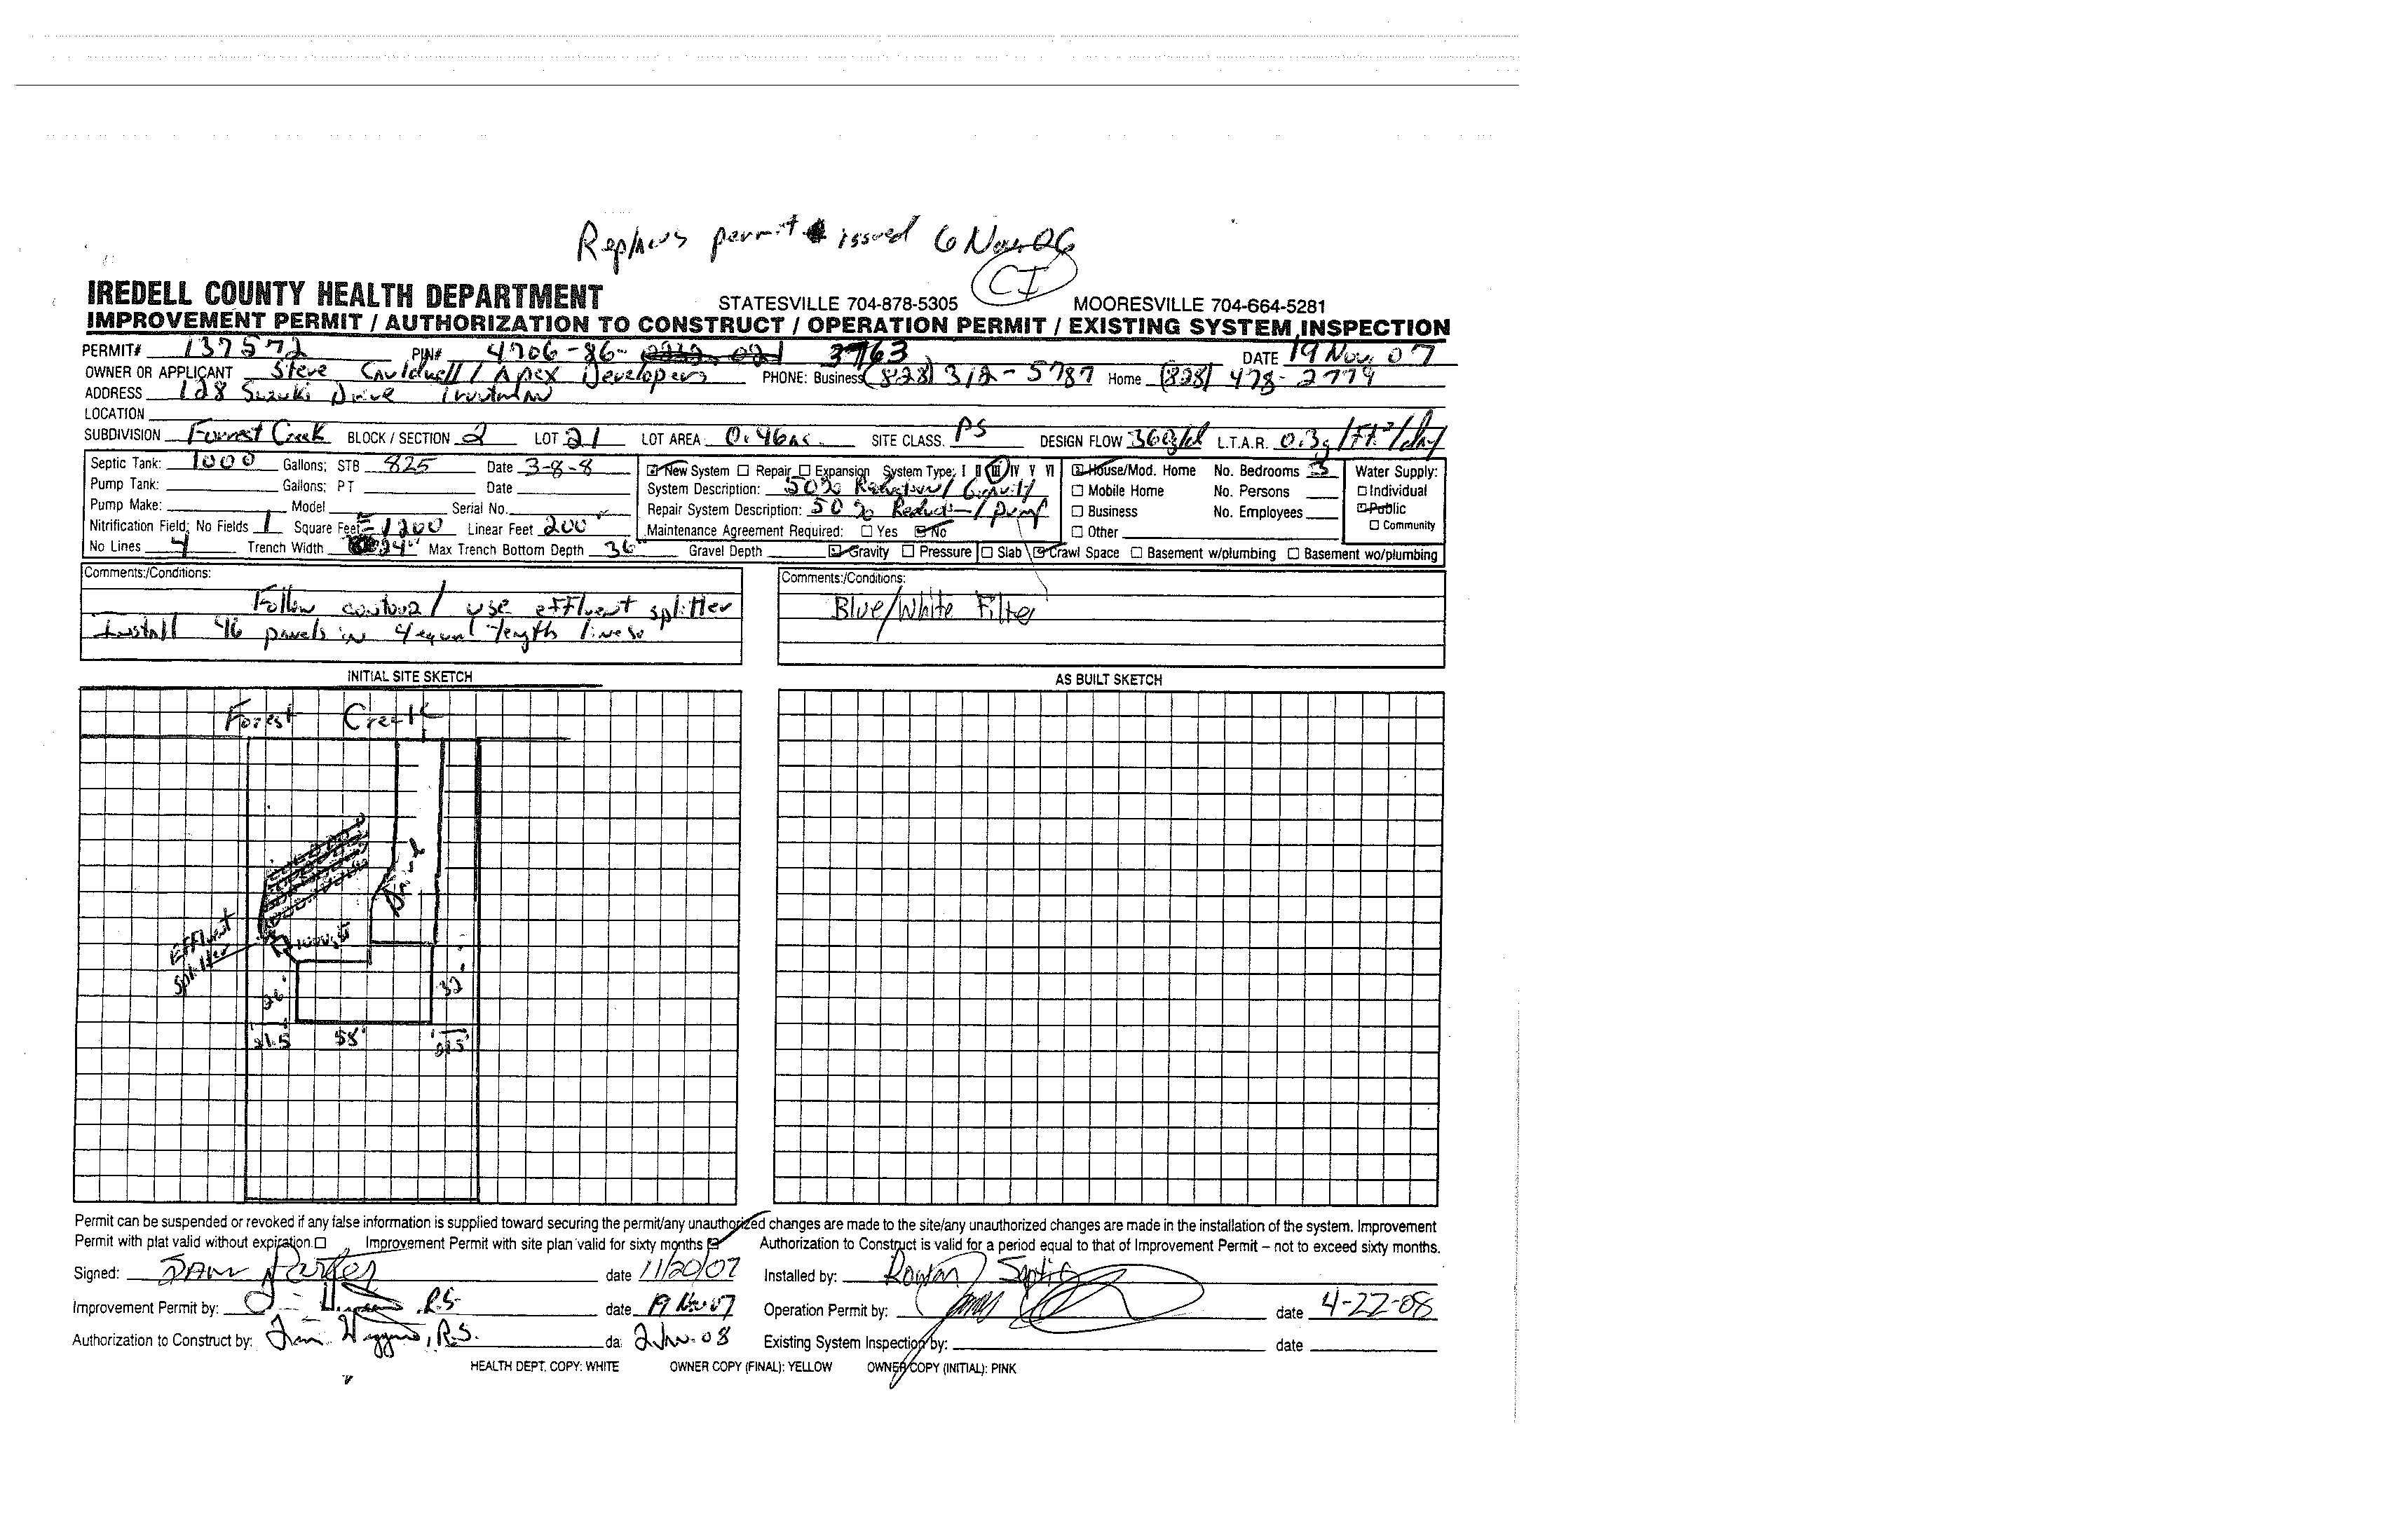 Replaces permit issued 6 Nov 06
CI
IREDELL COUNTY HEALTH DEPARTMENT STATESVILLE 704-878-5305 MOORESVILLE 704-664-5281
IMPROVEMENT PERMIT / AUTHORIZATION TO CONSTRUCT / OPERATION PERMIT / EXISTING SYSTEM INSPECTION
PERMIT# 137572 PIN# 4706-86- 3763 DATE 19 Nov. 07
OWNER OR APPLICANT Steve Cauldwell / Apex Developers PHONE: Business (828) 312-5787 Home (828) 478-2779
ADDRESS 128 Suzuki Drive Troutman
LOCATION
SUBDIVISION Forrest Creek BLOCK / SECTION 2 LOT 21 LOT AREA 0.46ac. SITE CLASS. PS DESIGN FLOW 360g/d L.T.A.R. 0.3g/Ft²/day
Septic Tank: 1000 Gallons; STB 825 Date 3-8-8 New System Repair Expansion System Type: I II III IV V VI House/Mod. Home No. Bedrooms 3 Water Supply:
Pump Tank: Gallons; PT Date System Description: 50% Reduction/Gravity Mobile Home No. Persons Individual
Pump Make: Model Serial No. Repair System Description: 50% Reduction/pump Business No. Employees Public
Nitrification Field; No Fields 1 Square Feet 1200 Linear Feet 200' Maintenance Agreement Required: Yes No Other Community
No Lines 4 Trench Width 24" Max Trench Bottom Depth 36" Gravel Depth Gravity Pressure Slab Crawl Space Basement w/plumbing Basement wo/plumbing
Comments:/Conditions:
Follow contour/ use effluent splitter
Install 46 panels in 4 equal length lines.
Comments:/Conditions:
Blue/White Filter
INITIAL SITE SKETCH
AS BUILT SKETCH
Forest Creek
Drive
Effluent
splitter
26'
32'
21.5 58' 21.5'
Permit can be suspended or revoked if any false information is supplied toward securing the permit/any unauthorized changes are made to the site/any unauthorized changes are made in the installation of the system. Improvement
Permit with plat valid without expiration Improvement Permit with site plan valid for sixty months Authorization to Construct is valid for a period equal to that of Improvement Permit – not to exceed sixty months.
Signed: date 11/20/07 Installed by: Rowan Septic
Improvement Permit by: R.S. date 19 Nov 07 Operation Permit by: date 4-22-08
Authorization to Construct by: R.S. da 08 Existing System Inspection by: date
HEALTH DEPT. COPY: WHITE OWNER COPY (FINAL): YELLOW OWNER COPY (INITIAL): PINK